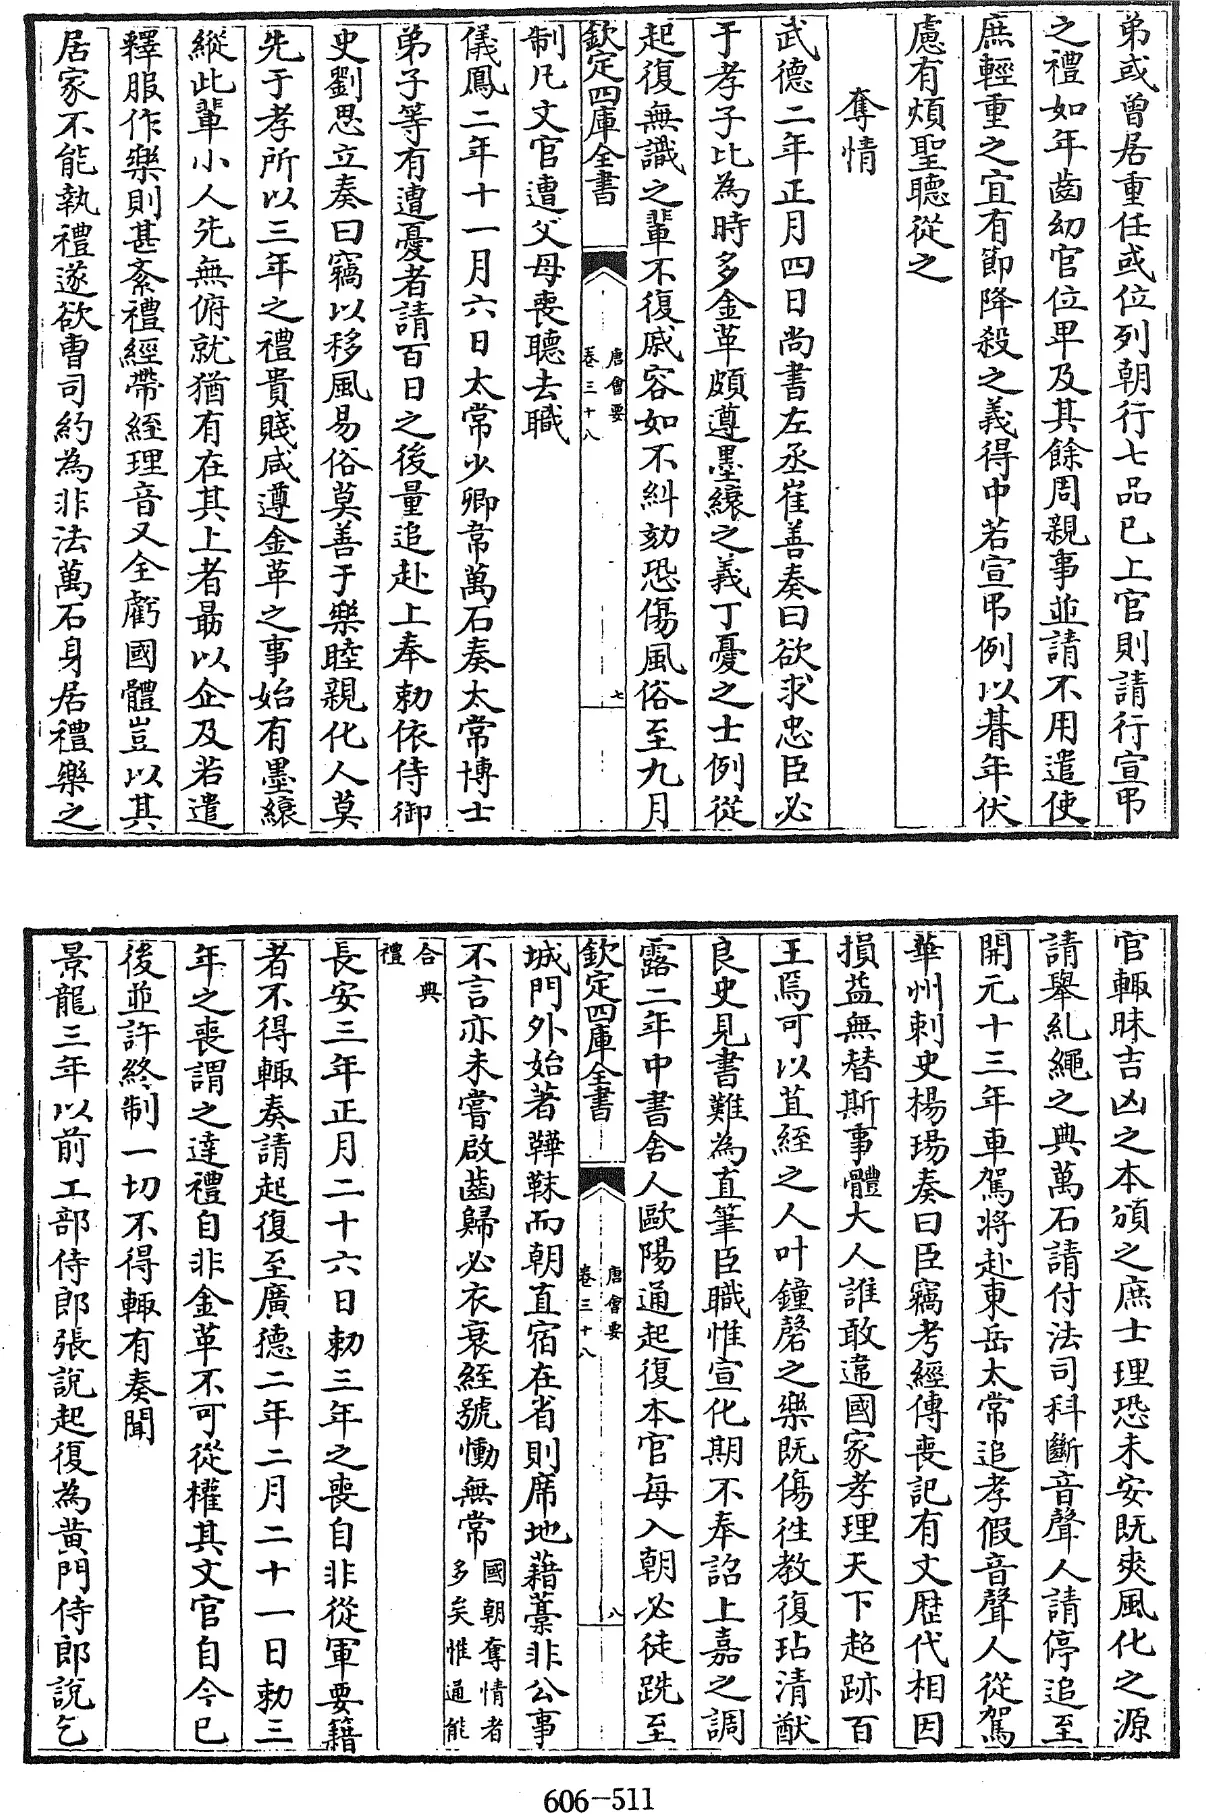 弟或曾居重任或位列朝行七品已上官則請行宣弔
之禮如年齒幼官位卑及其餘周親事並請不用遣使
庶輕重之宜有節降殺之義得中若宣弔例以朞年伏
慮有煩聖聽從之
奪情
武德二年正月四日尚書左丞崔善奏曰欲求忠臣必
于孝子比為時多金革頗遵墨縗之義丁憂之士例從
起復無識之輩不復戚容如不糾劾恐傷風俗至九月
欽定四庫全書
唐會要
卷三十八
七
制凡文官遭父母喪聽去職
儀鳳二年十一月六日太常少卿韋萬石奏太常博士
弟子等有遭憂者請百日之後量追赴上奉勅依侍御
史劉思立奏曰竊以移風易俗莫善于樂睦親化人莫
先于孝所以三年之禮貴賤咸遵金革之事始有墨縗
縱此輩小人先無俯就猶有在其上者最以企及若遣
釋服作樂則甚紊禮經帶絰理音又全虧國體豈以其
居家不能執禮遂欲曹司約為非法萬石身居禮樂之
官輙昧吉凶之本頒之庶士理恐未安既爽風化之源
請舉糺繩之典萬石請付法司科斷音聲人請停追至
開元十三年車駕將赴東岳太常追孝假音聲人從駕
華州刺史楊瑒奏曰臣竊考經傳喪記有文歴代相因
損益無替斯事體大人誰敢違國家孝理天下超跡百
王焉可以苴絰之人叶鐘磬之樂既傷徃教復玷清猷
良史見書難為直筆臣職惟宣化期不奉詔上嘉之調
露二年中書舍人歐陽通起復本官每入朝必徒跣至
欽定四庫全書
唐會要
卷三十八
八
城門外始著鞾靺而朝直宿在省則席地藉藁非公事
不言亦未嘗啟齒歸必衣衰絰號慟無常國朝奪情者
多矣惟通能
合典
禮
長安三年正月二十六日勅三年之喪自非從軍要籍
者不得輙奏請起復至廣德二年二月二十一日勅三
年之喪謂之達禮自非金革不可從權其文官自今已
後並許終制一切不得輙有奏聞
景龍三年以前工部侍郎張說起復為黄門侍郎說乞
606-511